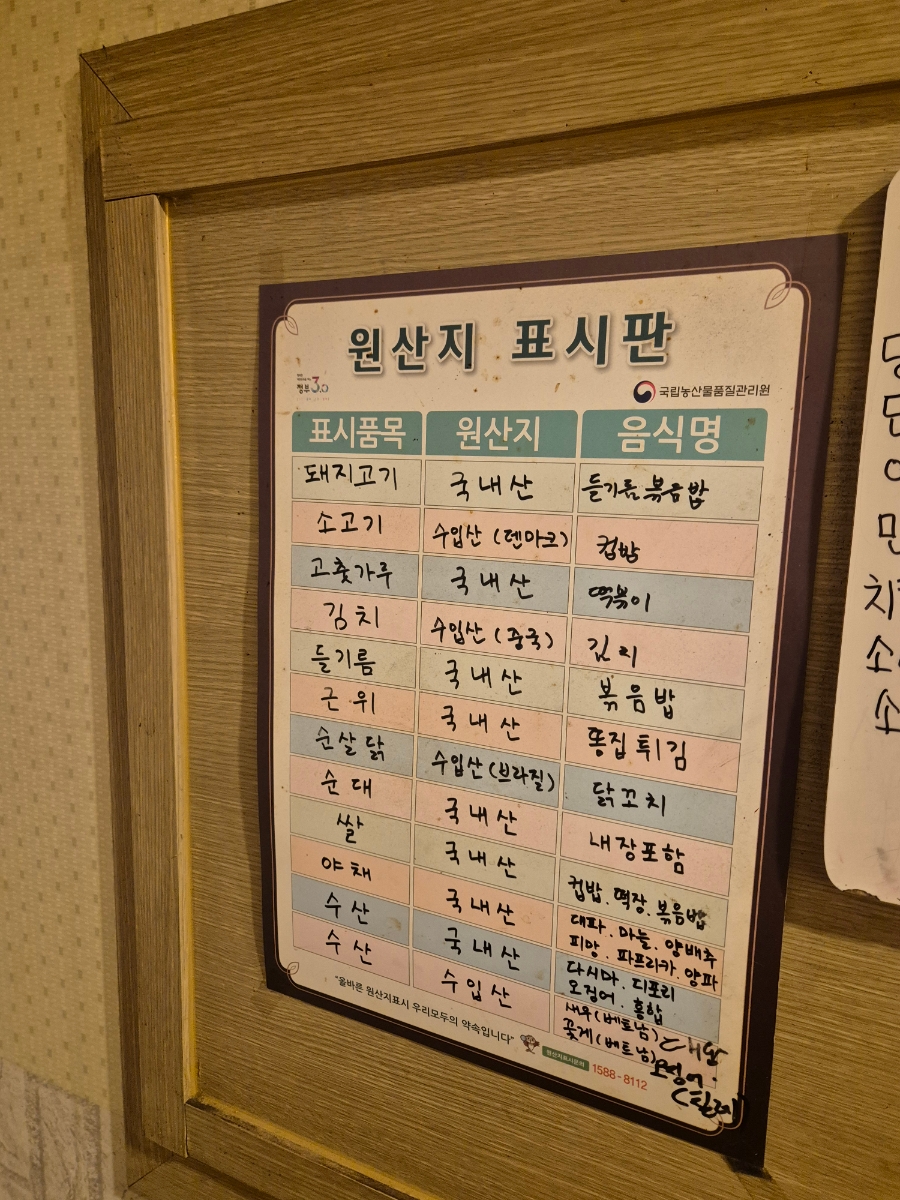 원산지 표시판
정부3.0
국립농산물품질관리원
표시품목 원산지 음식명
돼지고기 국내산 들기름볶음밥
소고기 수입산 (덴마크) 컵밥
고춧가루 국내산 떡볶이
김치 수입산 (중국)
들기름 국내산 볶음밥
근위 국내산 똥집튀김
순살닭 수입산 (브라질) 닭꼬치
순대 국내산 내장포함
쌀 국내산 컵밥. 떡장. 볶음밥
야채 국내산 대파. 마늘. 양배추
피망. 파프리카. 양파
수산 국내산 다시마. 디포리
오징어. 홍합
수산 수입산 새우(베트남)
꽃게(베트남)
오징어.
(칠레)
"올바른 원산지표시 우리모두의 약속입니다"
원산지표시문의 1588-8112